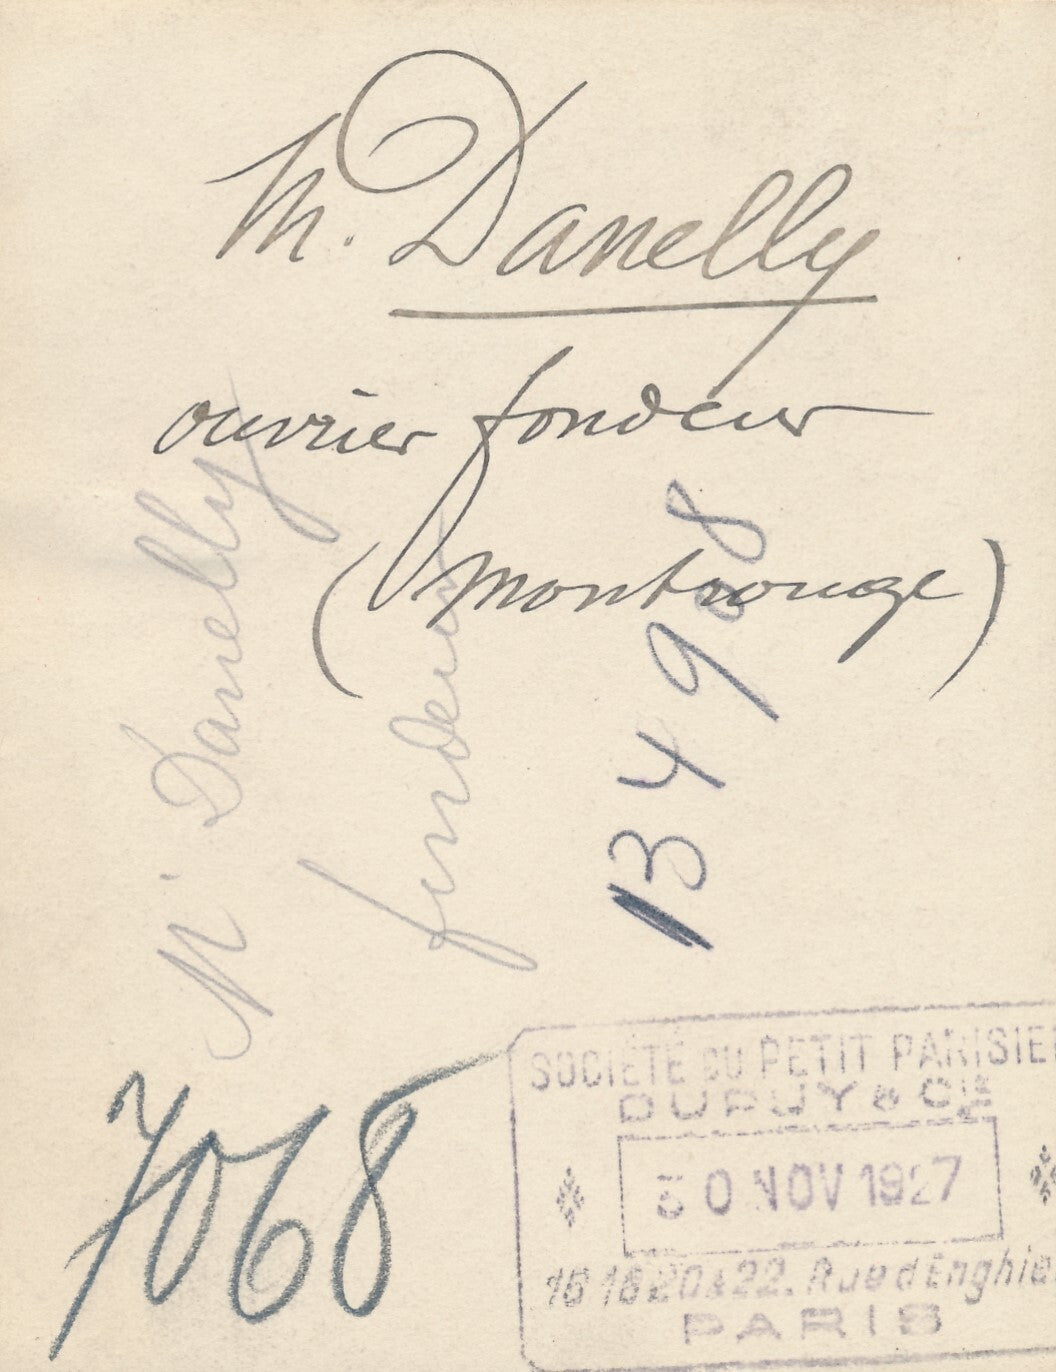 M. Danelly
ouvrier fondeur
(Montrouge)
M. Danelly
fondeur
13498
7068
SOCIÉTÉ DU PETIT PARISIEN
DUPUY & CIE
30 NOV 1927
16 18 20 & 22. Rue d'Enghien
PARIS